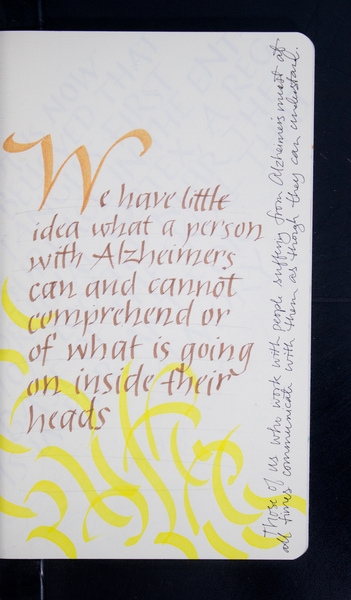 We have little
idea what a person
with Alzheimers
can and cannot
comprehend or
of what is going
on inside their
heads
Those of us who work with people suffering from Alzheimers must at
all times communicate with them as though they can understand.